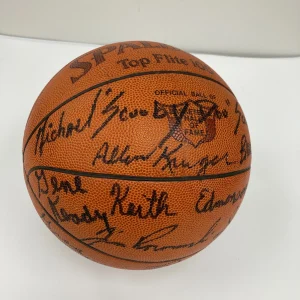 SPALDING
Top Flite
OFFICIAL BALL OF
HALL OF
FAME
Michael "Scooby Doo"
Allen Kruger
Gene
Keady Keith Edmonson
Jim